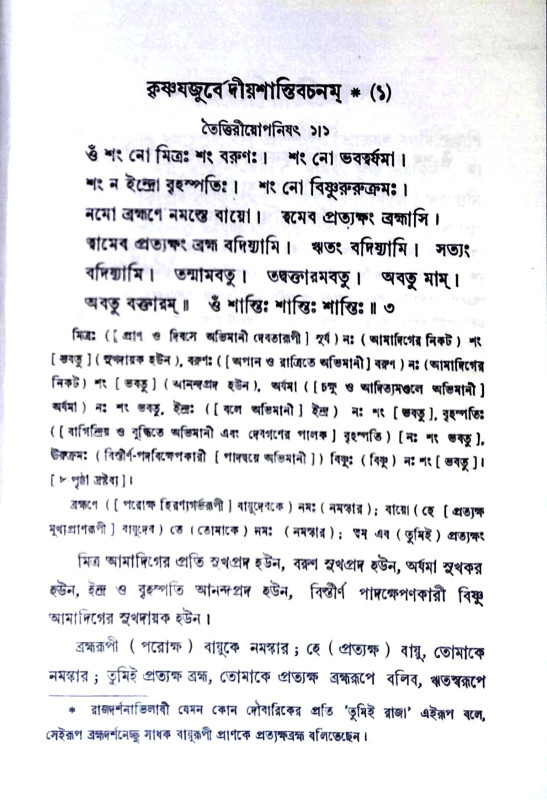 কৃষ্ণযজুর্বেদীয়শান্তিবচনম্ * (১)
তৈত্তিরীয়োপনিষৎ ১।১
ওঁ শং নো মিত্রঃ শং বরুণঃ। শং নো ভবত্বর্যমা।
শং ন ইন্দ্রো বৃহস্পতিঃ। শং নো বিষ্ণুরুরুক্রমঃ।
নমো ব্রহ্মণে নমস্তে বায়ো। ত্বমেব প্রত্যক্ষং ব্রহ্মাসি।
ত্বামেব প্রত্যক্ষং ব্রহ্ম বদিষ্যামি। ঋতং বদিষ্যামি। সত্যং
বদিষ্যামি। তন্মামবতু। তদ্বক্তারমবতু। অবতু মাম্।
অবতু বক্তারম্॥ ওঁ শান্তিঃ শান্তিঃ শান্তিঃ॥ ৩
মিত্রঃ ([ প্রাণ ও দিবসে অভিমানী দেবতারূপী ] সূর্য ) নঃ (আমাদিগের নিকট) শং
[ ভবতু ] ( সুখদায়ক হউন ), বরুণঃ ([ অপান ও রাত্রিতে অভিমানী ] বরুণ ) নঃ (আমাদিগের
নিকট) শং [ ভবতু ] ( আনন্দপ্রদ হউন ), অর্যমা ([ চক্ষু ও আদিত্যমণ্ডলে অভিমানী ]
অর্যমা ) নঃ শং ভবতু, ইন্দ্রঃ ([ বলে অভিমানী ] ইন্দ্র ) নঃ শং [ ভবতু ], বৃহস্পতিঃ
([ বাগিন্দ্রিয় ও বুদ্ধিতে অভিমানী এবং দেবগণের পালক ] বৃহস্পতি ) [ নঃ শং ভবতু ],
উরুক্রমঃ ( বিস্তীর্ণ-পদবিক্ষেপকারী [ পাদদ্বয়ে অভিমানী ] ) বিষ্ণুঃ ( বিষ্ণু ) নঃ শং [ ভবতু ]।
[ ৮ পৃষ্ঠা দ্রষ্টব্য ]।
ব্রহ্মণে ([ পরোক্ষ হিরণ্যগর্ভরূপী ] বায়ুদেবকে ) নমঃ ( নমস্কার ) ; বায়ো ( হে [ প্রত্যক্ষ
মুখ্যপ্রাণরূপী ] বায়ুদেব ) তে ( তোমাকে ) নমঃ ( নমস্কার ) ; ত্বম এব ( তুমিই ) প্রত্যক্ষং
মিত্র আমাদিগের প্রতি সুখপ্রদ হউন, বরুণ সুখপ্রদ হউন, অর্যমা সুখকর
হউন, ইন্দ্র ও বৃহস্পতি আনন্দপ্রদ হউন, বিস্তীর্ণ পাদক্ষেপণকারী বিষ্ণু
আমাদিগের সুখদায়ক হউন।
ব্রহ্মরূপী ( পরোক্ষ ) বায়ুকে নমস্কার ; হে ( প্রত্যক্ষ ) বায়ু, তোমাকে
নমস্কার ; তুমিই প্রত্যক্ষ ব্রহ্ম, তোমাকে প্রত্যক্ষ ব্রহ্মরূপে বলিব, ঋতস্বরূপে
* রাজদর্শনাভিলাষী যেমন কোন দৌবারিকের প্রতি 'তুমিই রাজা' এইরূপ বলে,
সেইরূপ ব্রহ্মদর্শনেচ্ছু সাধক বায়ুরূপী প্রাণকে প্রত্যক্ষব্রহ্ম বলিতেছেন।